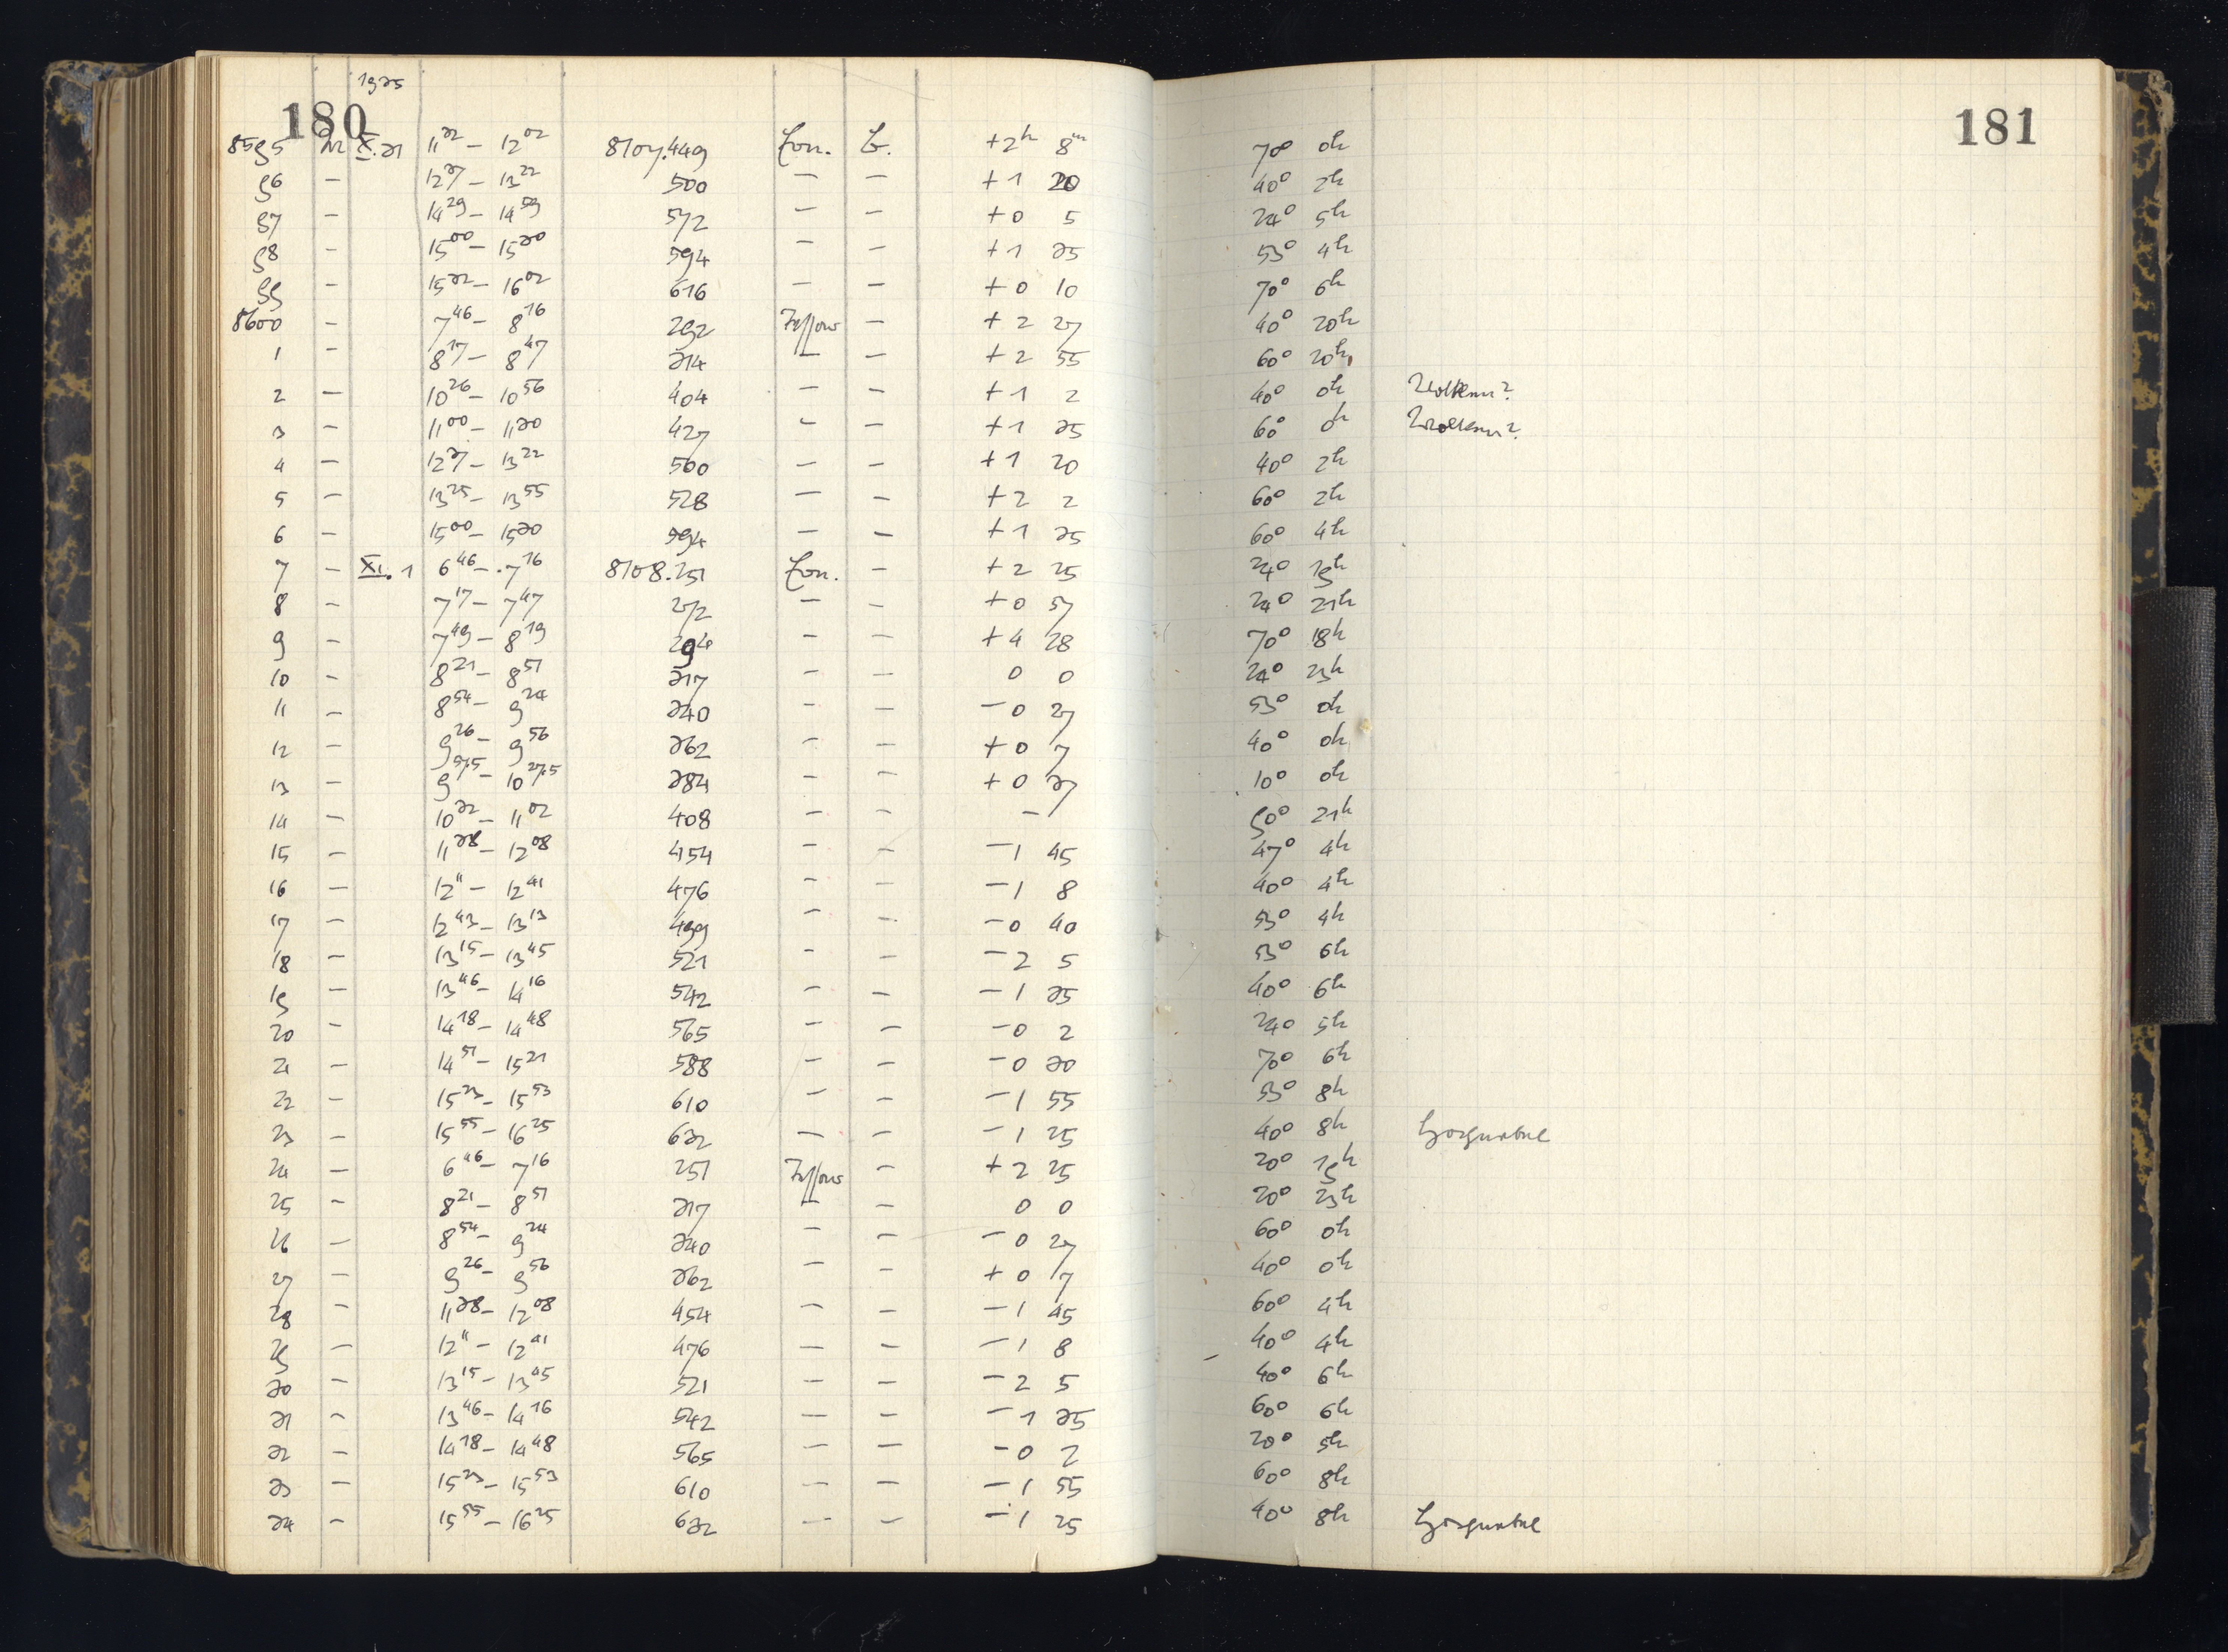 180 1935 181
8595 M X.31 11³² – 12⁰² 8107.449 Ern. +2ʰ 8ᵐ 70° 0h
96 – 12³⁷ – 13²² 500 – – +1 20 40° 2h
97 – 14²⁹ – 14⁵⁹ 572 – – +0 5 24° 5h
98 – 15⁰⁰ – 15³⁰ 594 – – +1 35 53° 4h
99 – 15³² – 16⁰² 616 – – +0 10 70° 6h
8600 – 7⁴⁶ – 8¹⁶ 292 Tessar – +2 27 40° 20h
1 – 8¹⁷ – 8⁴⁷ 314 – – +2 55 60° 20h
2 – 10²⁶ – 10⁵⁶ 404 – – +1 2 40° 0h Wolken?
3 – 11⁰⁰ – 11³⁰ 427 – – +1 35 60° 0h Wolken?
4 – 12³⁷ – 13²² 500 – – +1 20 40° 2h
5 – 13²⁵ – 13⁵⁵ 528 – – +2 2 60° 2h
6 – 15⁰⁰ – 15³⁰ 594 – – +1 35 60° 4h
7 – XI.1 6⁴⁶ – 7¹⁶ 8108.251 Ern. – +2 25 24° 19h
8 – 7¹⁷ – 7⁴⁷ 272 – – +0 57 24° 21h
9 – 7⁴⁹ – 8¹⁹ 294 – – +4 28 70° 18h
10 – 8²¹ – 8⁵¹ 317 – – 0 0 24° 23h
11 – 8⁵⁴ – 9²⁴ 340 – – –0 27 53° 0h
12 – 9²⁶ – 9⁵⁶ 362 – – +0 7 40° 0h
13 – 9⁵⁷·⁵ – 10²⁷·⁵ 384 – – +0 37 10° 0h
14 – 10³² – 11⁰² 408 – – – 90° 21h
15 – 11³⁸ – 12⁰⁸ 454 – – –1 45 47° 4h
16 – 12¹¹ – 12⁴¹ 476 – – –1 8 40° 4h
17 – 12⁴³ – 13¹³ 499 – – –0 40 53° 4h
18 – 13¹⁵ – 13⁴⁵ 521 – – –2 5 53° 6h
19 – 13⁴⁶ – 14¹⁶ 542 – – –1 35 40° 6h
20 – 14¹⁸ – 14⁴⁸ 565 – – –0 2 24° 5h
21 – 14⁵¹ – 15²¹ 588 – – –0 30 70° 6h
22 – 15²³ – 15⁵³ 610 – – –1 55 53° 8h
23 – 15⁵⁵ – 16²⁵ 632 – – –1 25 40° 8h
24 – 6⁴⁶ – 7¹⁶ 251 Tessar – +2 25 20° 19h
25 – 8²¹ – 8⁵¹ 317 – – 0 0 20° 23h
26 – 8⁵⁴ – 9²⁴ 340 – – –0 27 60° 0h
27 – 9²⁶ – 9⁵⁶ 362 – – +0 7 40° 0h
28 – 11³⁸ – 12⁰⁸ 454 – – –1 45 60° 4h
29 – 12¹¹ – 12⁴¹ 476 – – –1 8 40° 4h
30 – 13¹⁵ – 13⁴⁵ 521 – – –2 5 40° 6h
31 – 13⁴⁶ – 14¹⁶ 542 – – –1 35 60° 6h
32 – 14¹⁸ – 14⁴⁸ 565 – – –0 2 20° 5h
33 – 15²³ – 15⁵³ 610 – – –1 55 60° 8h
34 – 15⁵⁵ – 16²⁵ 632 – – –1 25 40° 8h